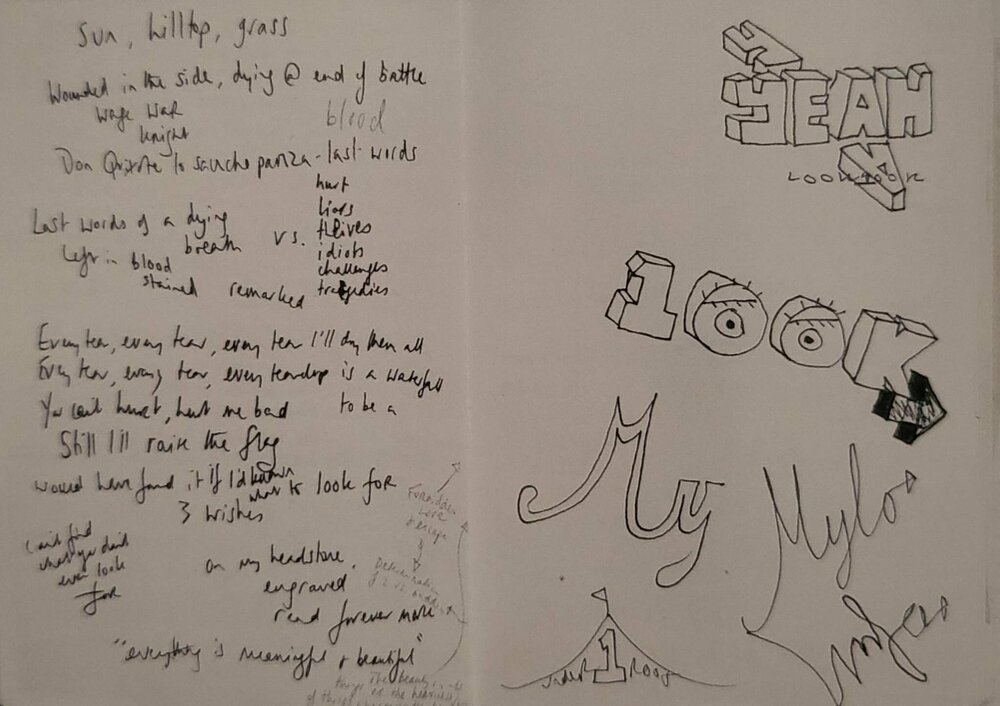 Sun, hilltop, grass
Wounded in the side, dying @ end of battle
wage war
knight
blood
Don Quixote to sancho panza - last words
hurt
liars
thieves
idiots
challenges
tragedies
Last words of a dying
breath
vs.
Left in blood
stained
remarked
Every tear, every tear, every tear I'll dry them all
Every tear, every tear, every teardrop is a waterfall
You can't hurt, hurt me bad
to be a
Still I'll raise the flag
would have found it if I'd known
what to look for
3 wishes
can't find
what you don't
even look
for
Forbidden
Love
escape
on my headstone,
engraved
read forever more
"everything is meaningful & beautiful"
things The beauty
of things
YEAH
LOOK
LOOK
My
Mylo
UNDER 1 ROOF